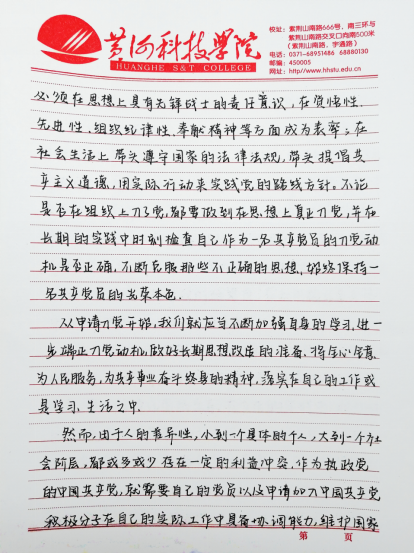 黄河科技学院
HUANGHE S&T COLLEGE
校址：紫荆山南路666号，南三环与
紫荆山南路交叉口向南500米
（紫荆山南路，宇通路）
电话：0371-68951486 68880130
邮编：450005
网址：http://www.hhstu.edu.cn
必须在思想上具有先锋战士的责任意识，在觉悟性、
先进性、组织纪律性、奉献精神等方面成为表率；在
社会生活上带头遵守国家的法律法规，带头提倡共
产主义道德，用实际行动来实践党的路线方针。不论
是否在组织上入了党，都要做到在思想上真正入党，并在
长期的实践中时刻检查自己作为一名共产党员的入党动
机是否正确，不断克服那些不正确的思想，始终保持一
名共产党员的光荣本色。
从申请入党开始，我们就应当不断加强自身的学习，进一
步端正入党动机，做好长期思想改造的准备。将全心全意
为人民服务，为共产事业奋斗终身的精神，落实在自己的工作或
是学习、生活之中。
然而，由于人的差异性，小到一个具体的个人，大到一个社
会阶层，都或多或少存在一定的利益冲突。作为执政党
的中国共产党，就需要自己的党员以及申请加入中国共产党
积极分子在自己的实际工作中具备协调能力，维护国家
第 页